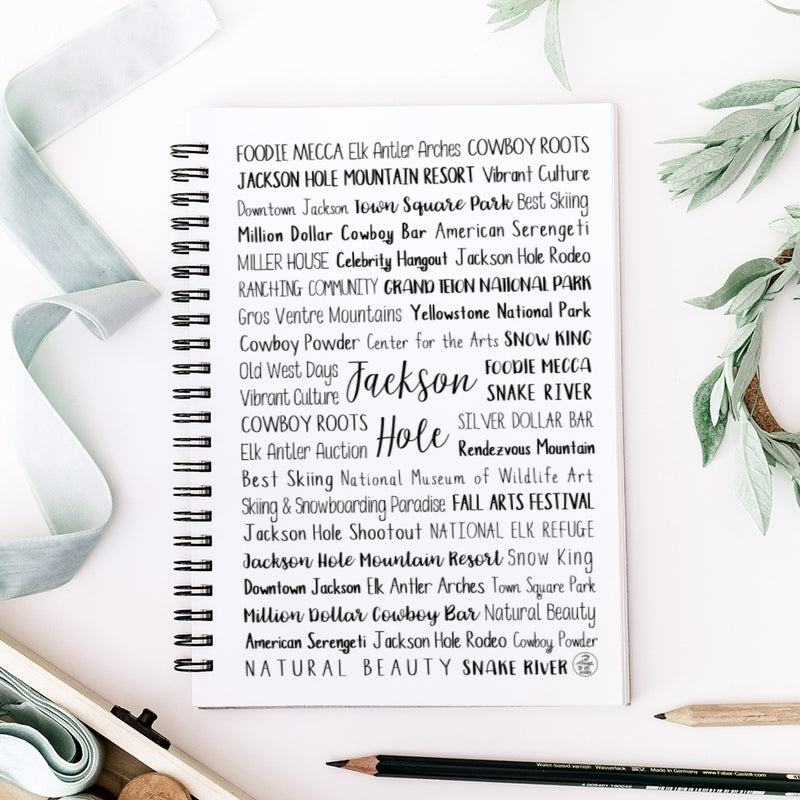 FOODIE MECCA Elk Antler Arches COWBOY ROOTS
JACKSON HOLE MOUNTAIN RESORT Vibrant Culture
Downtown Jackson Town Square Park Best Skiing
Million Dollar Cowboy Bar American Serengeti
MILLER HOUSE Celebrity Hangout Jackson Hole Rodeo
RANCHING COMMUNITY GRAND TETON NATIONAL PARK
Gros Ventre Mountains Yellowstone National Park
Cowboy Powder Center for the Arts SNOW KING
Old West Days Jackson FOODIE MECCA
Vibrant Culture SNAKE RIVER
COWBOY ROOTS Hole SILVER DOLLAR BAR
Elk Antler Auction Rendezvous Mountain
Best Skiing National Museum of Wildlife Art
Skiing & Snowboarding Paradise FALL ARTS FESTIVAL
Jackson Hole Shootout NATIONAL ELK REFUGE
Jackson Hole Mountain Resort Snow King
Downtown Jackson Elk Antler Arches Town Square Park
Million Dollar Cowboy Bar Natural Beauty
American Serengeti Jackson Hole Rodeo Cowboy Powder
NATURAL BEAUTY SNAKE RIVER
Water-based varnish Wasserlack Made in Germany www.Faber-Castell.com